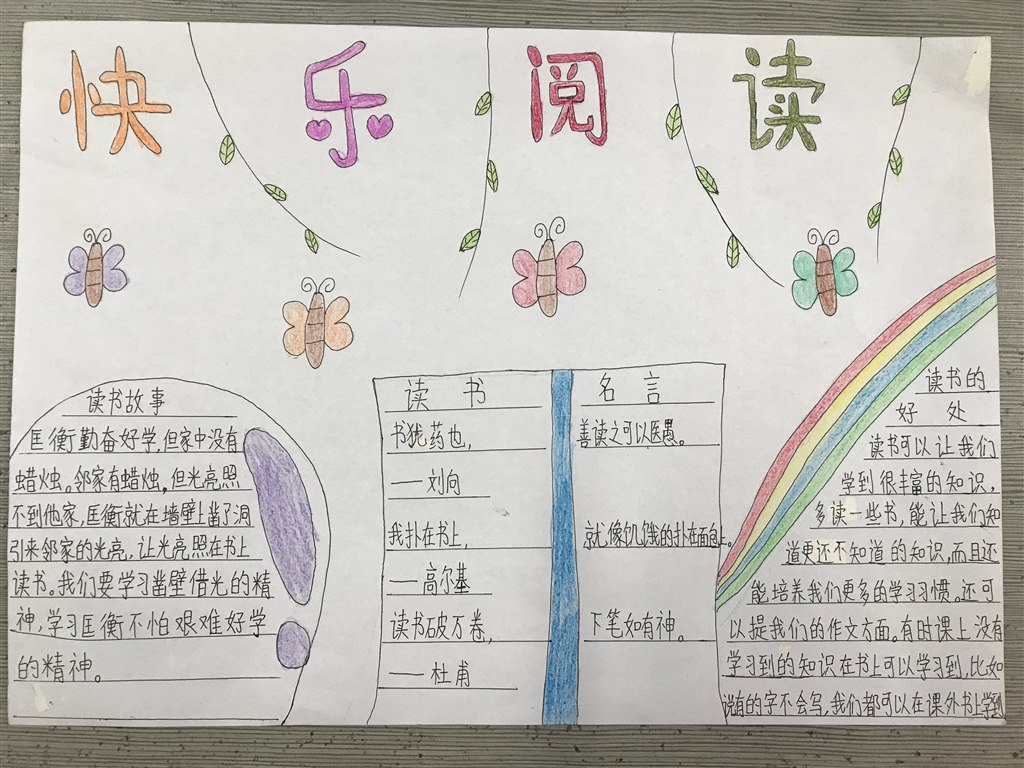 快乐阅读
读书故事
匡衡勤奋好学，但家中没有
蜡烛。邻家有蜡烛，但光亮照
不到他家，匡衡就在墙壁上凿了洞
引来邻家的光亮，让光亮照在书上
读书。我们要学习凿壁借光的精
神，学习匡衡不怕艰难好学
的精神。
读书名言
书犹药也，善读之可以医愚。
——刘向
我扑在书上，就像饥饿的扑在面包上。
——高尔基
读书破万卷，下笔如有神。
——杜甫
读书的
好处
读书可以让我们
学到很丰富的知识，
多读一些书，能让我们知
道更还不知道的知识，而且还
能培养我们更多的学习习惯。还可
以提我们的作文方面。有时课上没有
学习到的知识在书上可以学习到，比如
说有的字不会写，我们都可以在课外书上学到